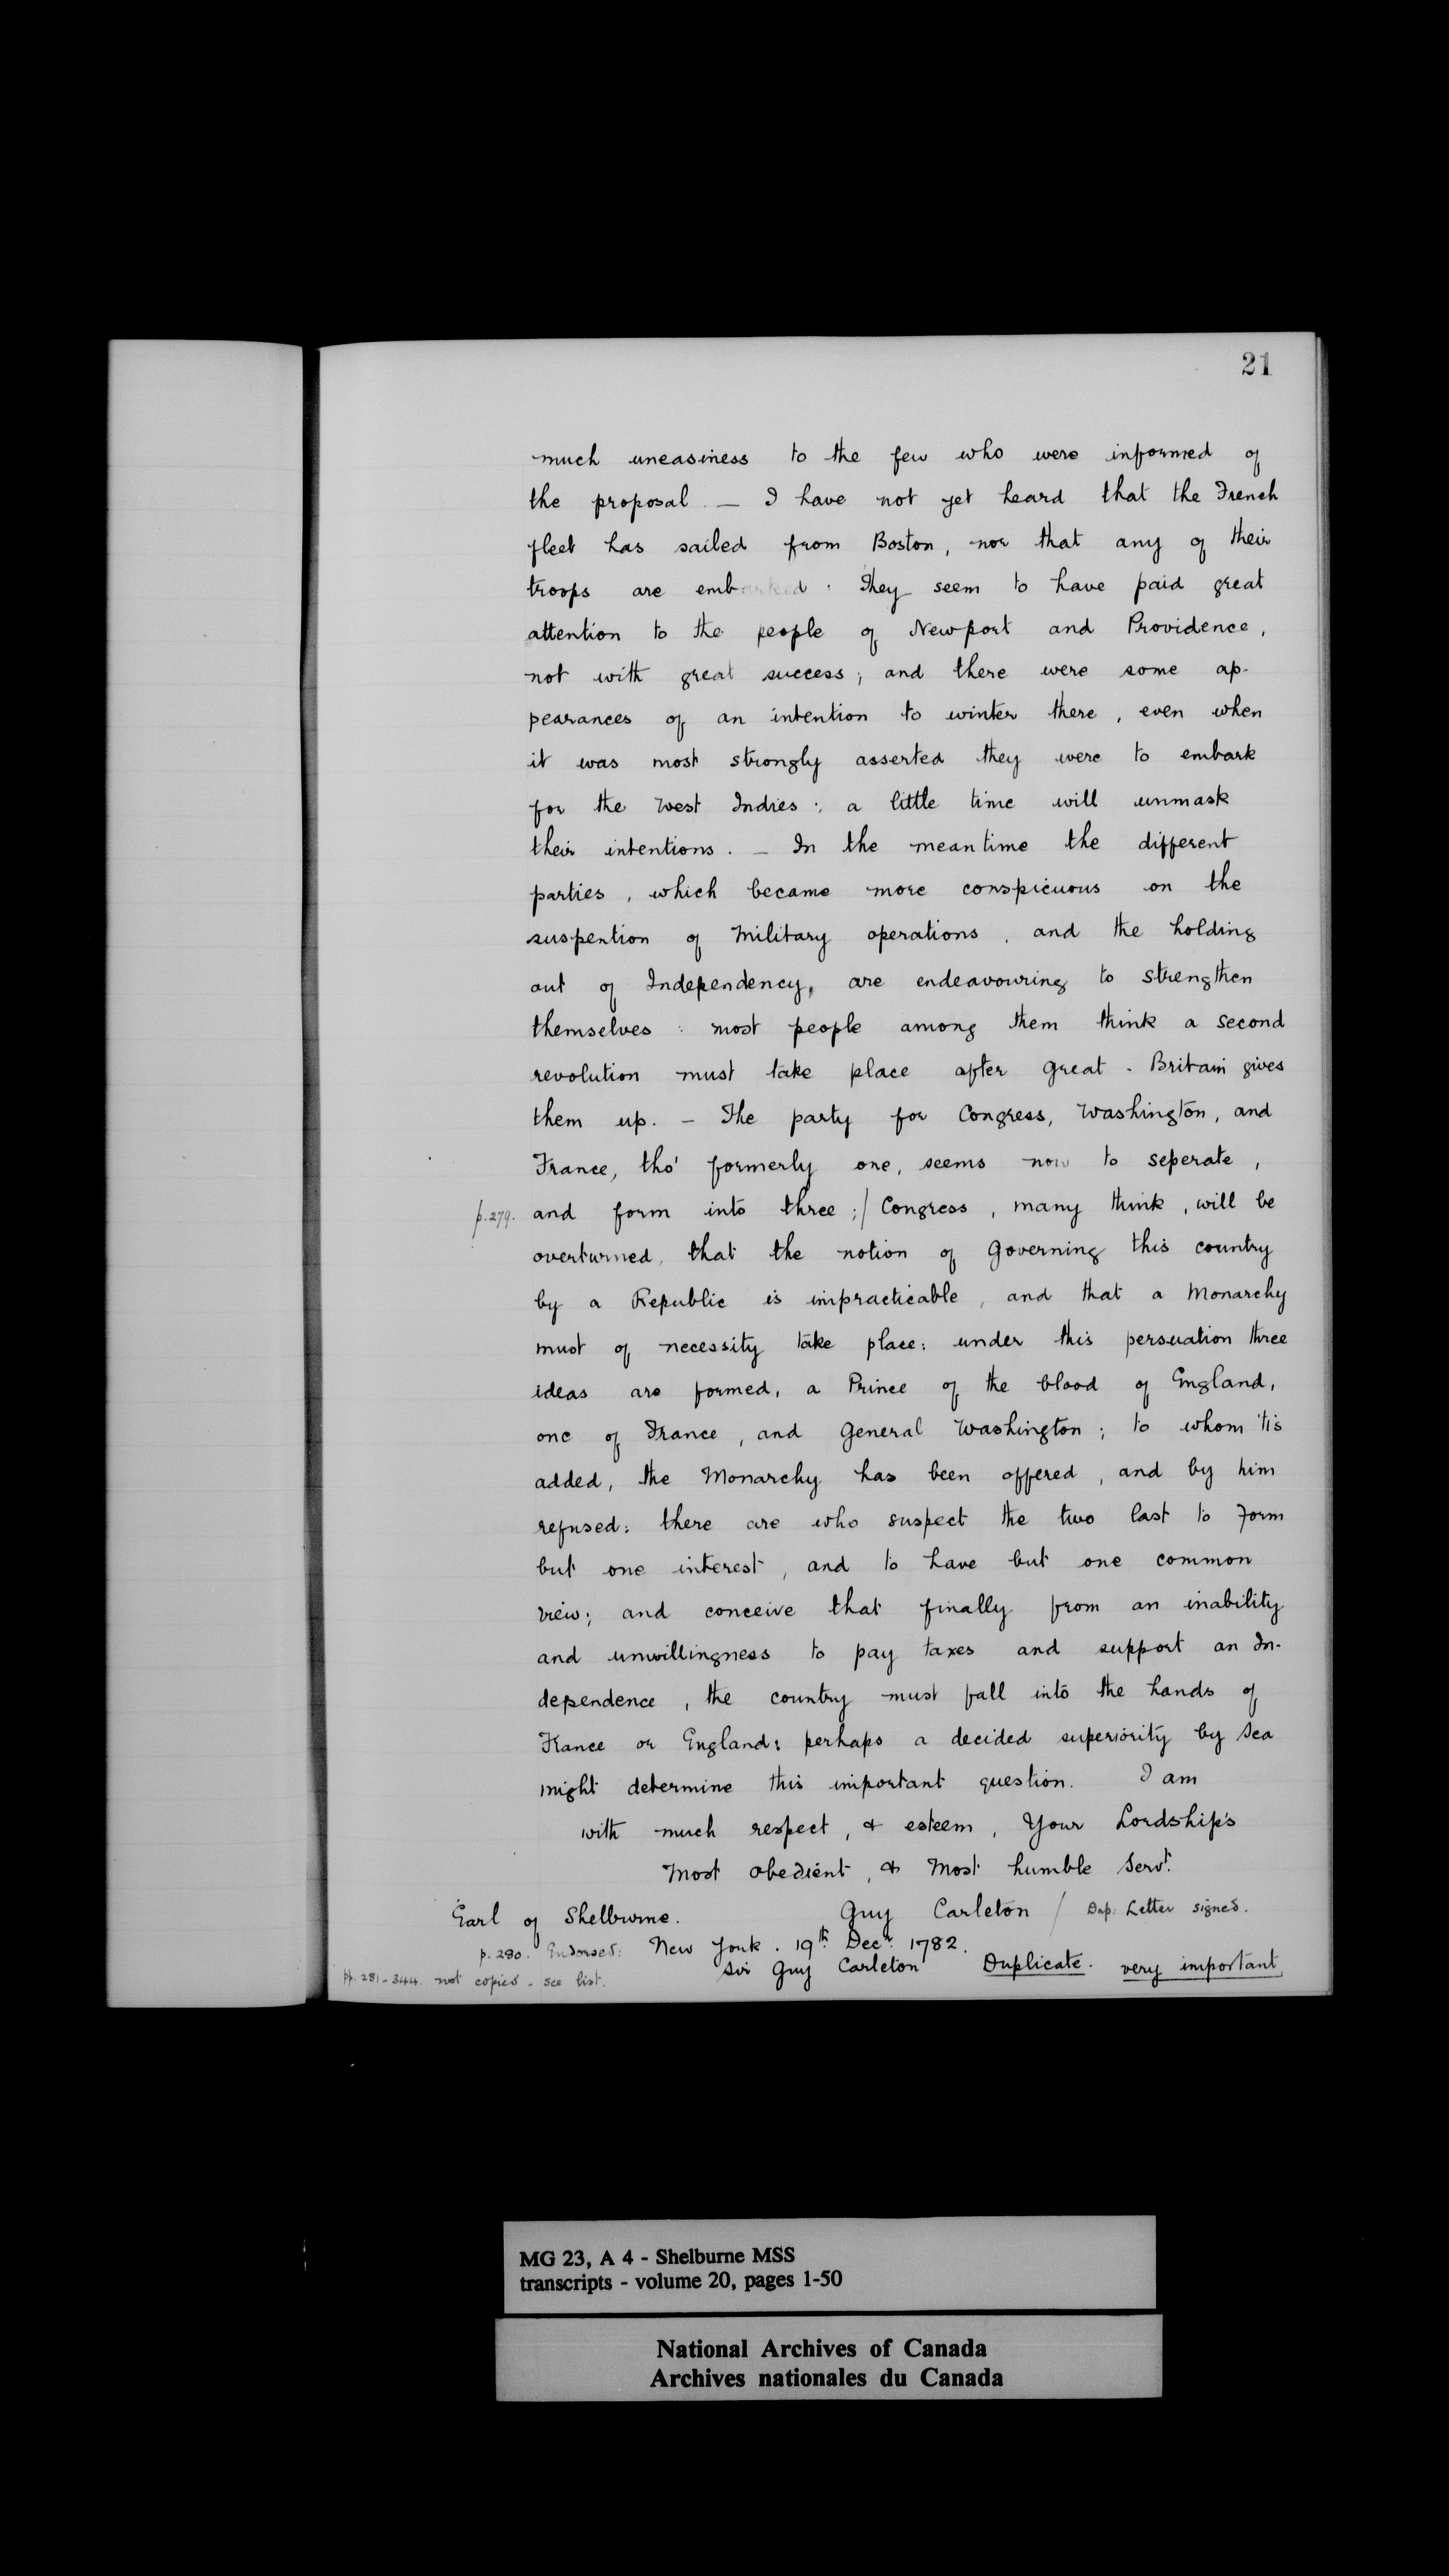 21
much uneasiness to the few who were informed of
the proposal. — I have not yet heard that the French
fleet has sailed from Boston, nor that any of their
troops are embarked : They seem to have paid great
attention to the people of Newport and Providence,
not with great success; and there were some ap-
pearances of an intention to winter there, even when
it was most strongly asserted they were to embark
for the West Indies : a little time will unmask
their intentions. — In the meantime the different
parties, which became more conspicuous on the
suspention of Military operations, and the holding
out of Independency, are endeavouring to strengthen
themselves : most people among them think a second
revolution must take place after Great-Britain gives
them up. — The party for Congress, Washington, and
France, tho' formerly one, seems now to seperate,
p.279. and form into three;/ Congress, many think, will be
overturned, that the notion of Governing this country
by a Republic is impracticable, and that a Monarchy
must of necessity take place: under this persuation three
ideas are formed, a Prince of the blood of England,
one of France, and General Washington; to whom 'tis
added, the Monarchy has been offered, and by him
refused: there are who suspect the two last to form
but one interest, and to have but one common
view; and conceive that finally from an inability
and unwillingness to pay taxes and support an In-
dependence, the country must fall into the hands of
France or England: perhaps a decided superiority by Sea
might determine this important question. I am
with much respect, & esteem, Your Lordship's
Most Obedient, & Most humble Servt.
Earl of Shelburne. Guy Carleton / Dup: Letter signed.
p. 280. Endorsed: New York. 19th Decr. 1782.
Sir Guy Carleton Duplicate. very important
pp. 281-344. not copied - see list.
MG 23, A 4 - Shelburne MSS
transcripts - volume 20, pages 1-50
National Archives of Canada
Archives nationales du Canada